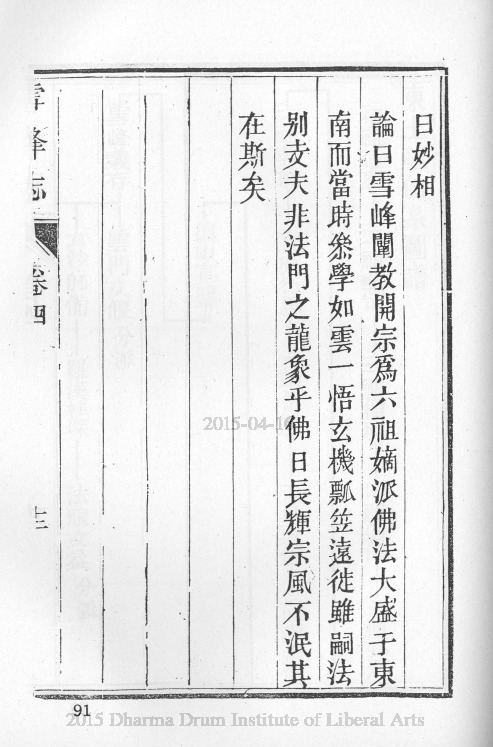 曰妙相
論曰雪峰闡教開宗爲六祖嫡派佛法大盛于東
南而當時叅學如雲一悟玄機瓢笠遠徙雖嗣法
别支夫非法門之龍象乎佛日長輝宗風不泯其
在斯矣
雪峰志
卷四
91
2015-04-10
2015 Dharma Drum Institute of Liberal Arts